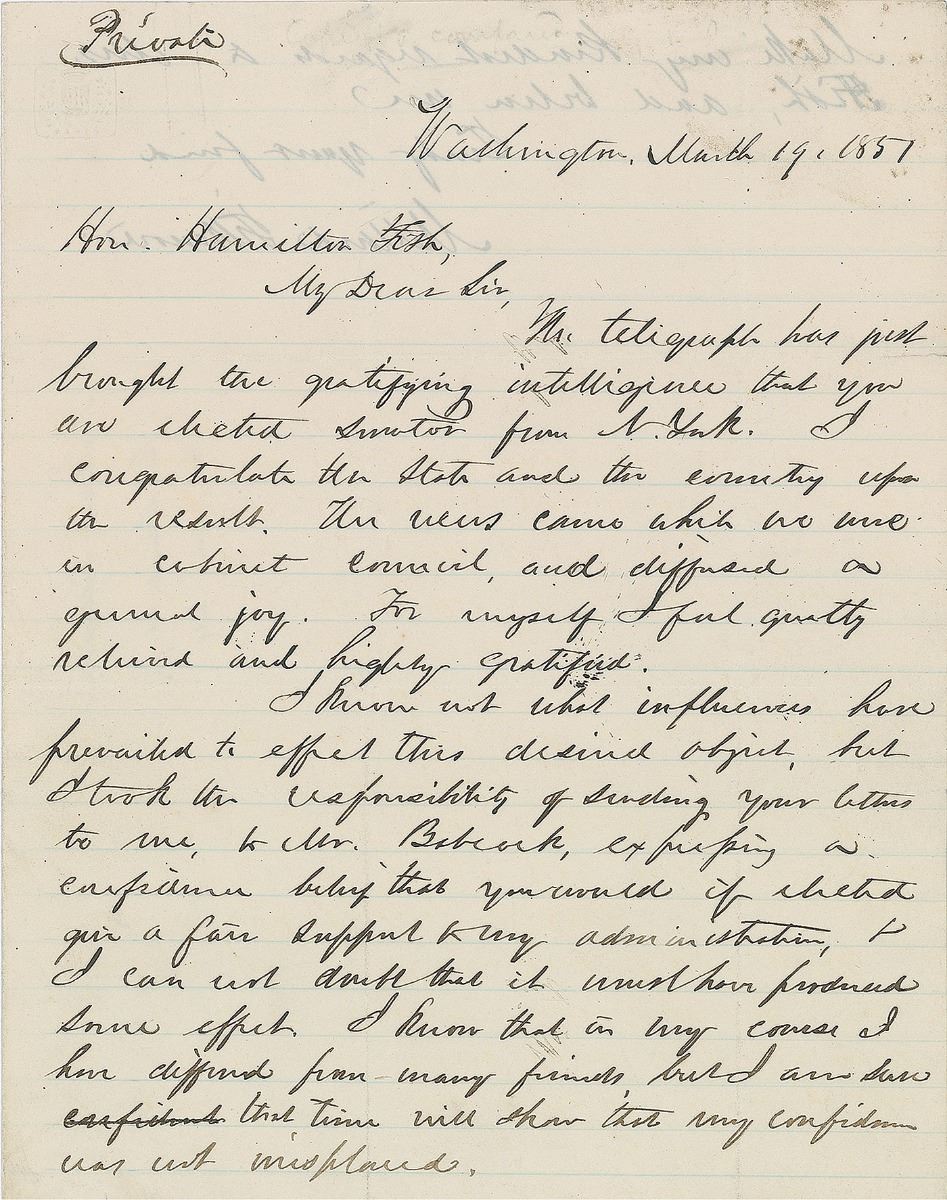 Private
Washington, March 19, 1851
Hon. Hamilton Fish,
My Dear Sir,
The telegraph has just
brought the gratifying intelligence that you
are elected senator from N. York. I
congratulate the State and the country upon
the result. The news came while we were
in cabinet council, and diffused a
general joy. For myself I feel greatly
relieved and highly gratified.
I know not what influences have
prevailed to effect this desired object, but
I took the responsibility of sending your letter
to me, to Mr. Babcock, expressing a
confidence belief that you would if elected
give a fair support to my administration, &
I can not doubt that it must have produced
some effect. I know that in my course I
have differed from many friends, but I am sure
confident that time will show that my confidence
was not misplaced.